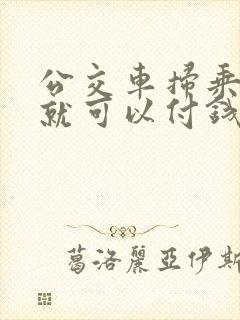 公交車掃乘
就可以付錢
葛洛麗亞伊斯